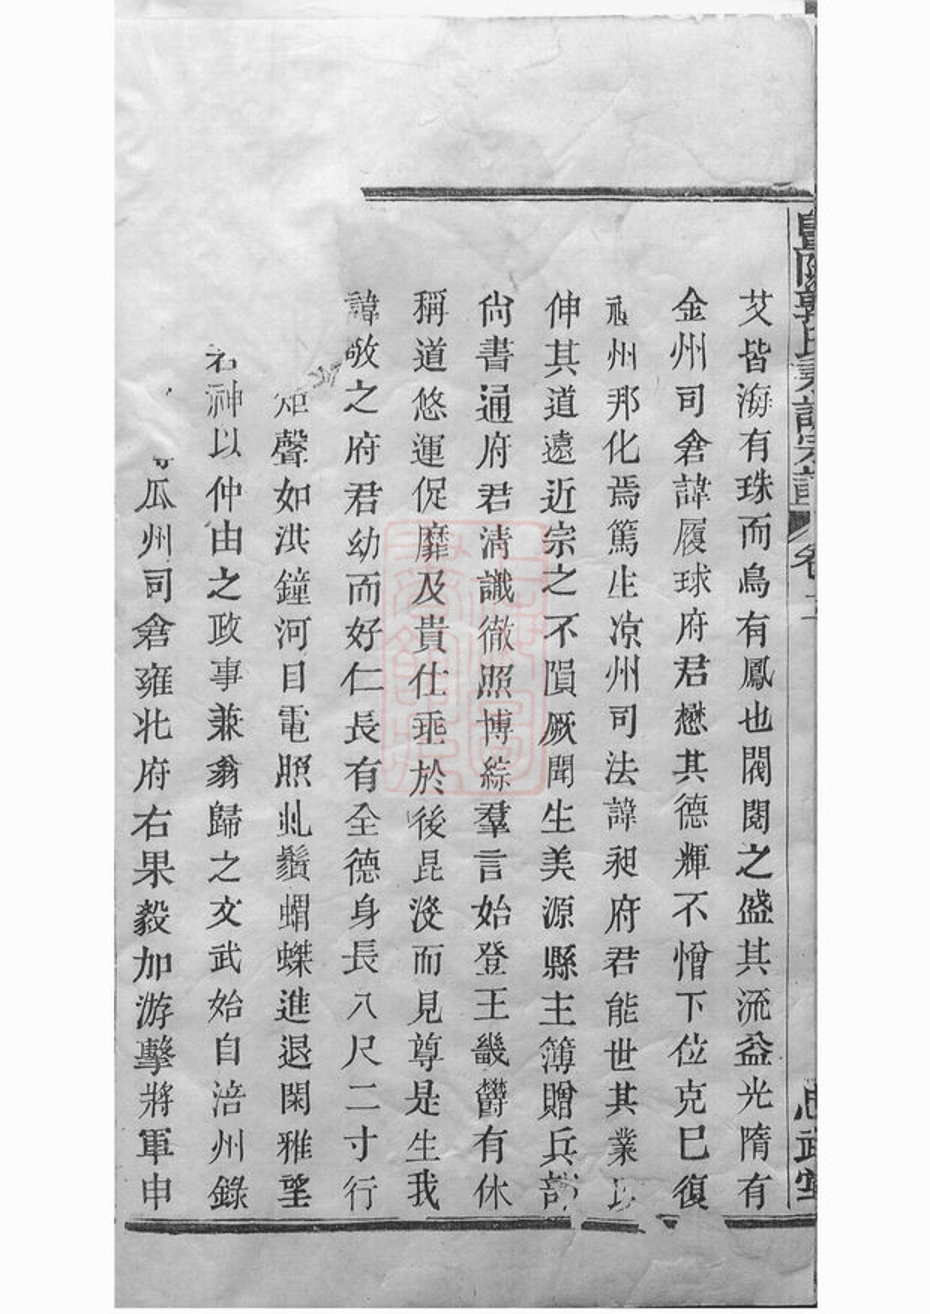 艾皆海有珠而鳥有鳳也閥閱之盛其流益光隋有
金州司倉諱履球府君懋其德輝不憎下位克巳復
禮州邦化焉篤生凉州司法諱昶府君能世其業以
伸其道遠近宗之不隕厥聞生美源縣主簿贈兵部
尙書通府君清識徹照博綜羣言始登王畿欝有休
稱道悠運促靡及貴仕埀於後昆沒而見尊是生我
諱敬之府君幼而好仁長有全德身長八尺二寸行
矩聲如洪鐘河目電照虬鬚蝟磔進退閑雅望
若神以仲由之政事兼翁歸之文武始自涪州錄
瓜州司倉雍北府右果毅加游擊將軍申
郭氏 宗譜 卷 忠武堂